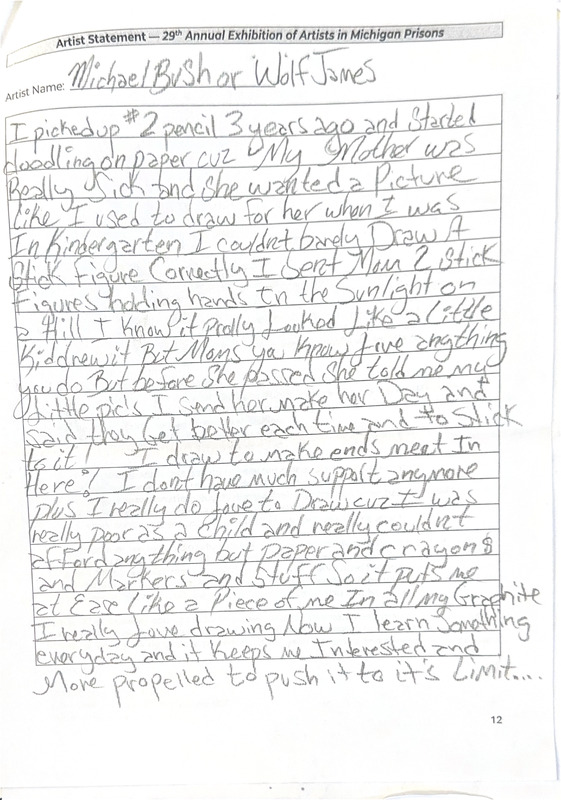 Artist Statement — 29th Annual Exhibition of Artists in Michigan Prisons
Artist Name: Michael Bush or Wolf James
I picked up #2 pencil 3 years ago and Started
doodling on paper cuz My Mother was
Really Sick and She wanted a Picture
like I used to draw for her when I was
In Kindergarten I couldnt barely Draw A
Stick Figure Correctly I Sent Mom 2 Stick
Figures holding hands In the Sunlight on
a Hill I Know it prolly Looked Like a little
Kid drew it But Moms ya Know Love anything
you do But before She passed She told me my
Little pic's I send her make her Day and
said they Get better each time and to Stick
to it! I draw to make ends meet In
Here! I dont have much support anymore
plus I really do love to Draw cuz I was
really poor as a Child and really couldnt
afford anything but paper and crayons
and Markers and Stuff So it puts me
at Ease Like a Piece of me In all my Graphite
I really Love drawing Now I learn Something
everyday and it Keeps me Interested and
More propelled to push it to it's Limit....
12